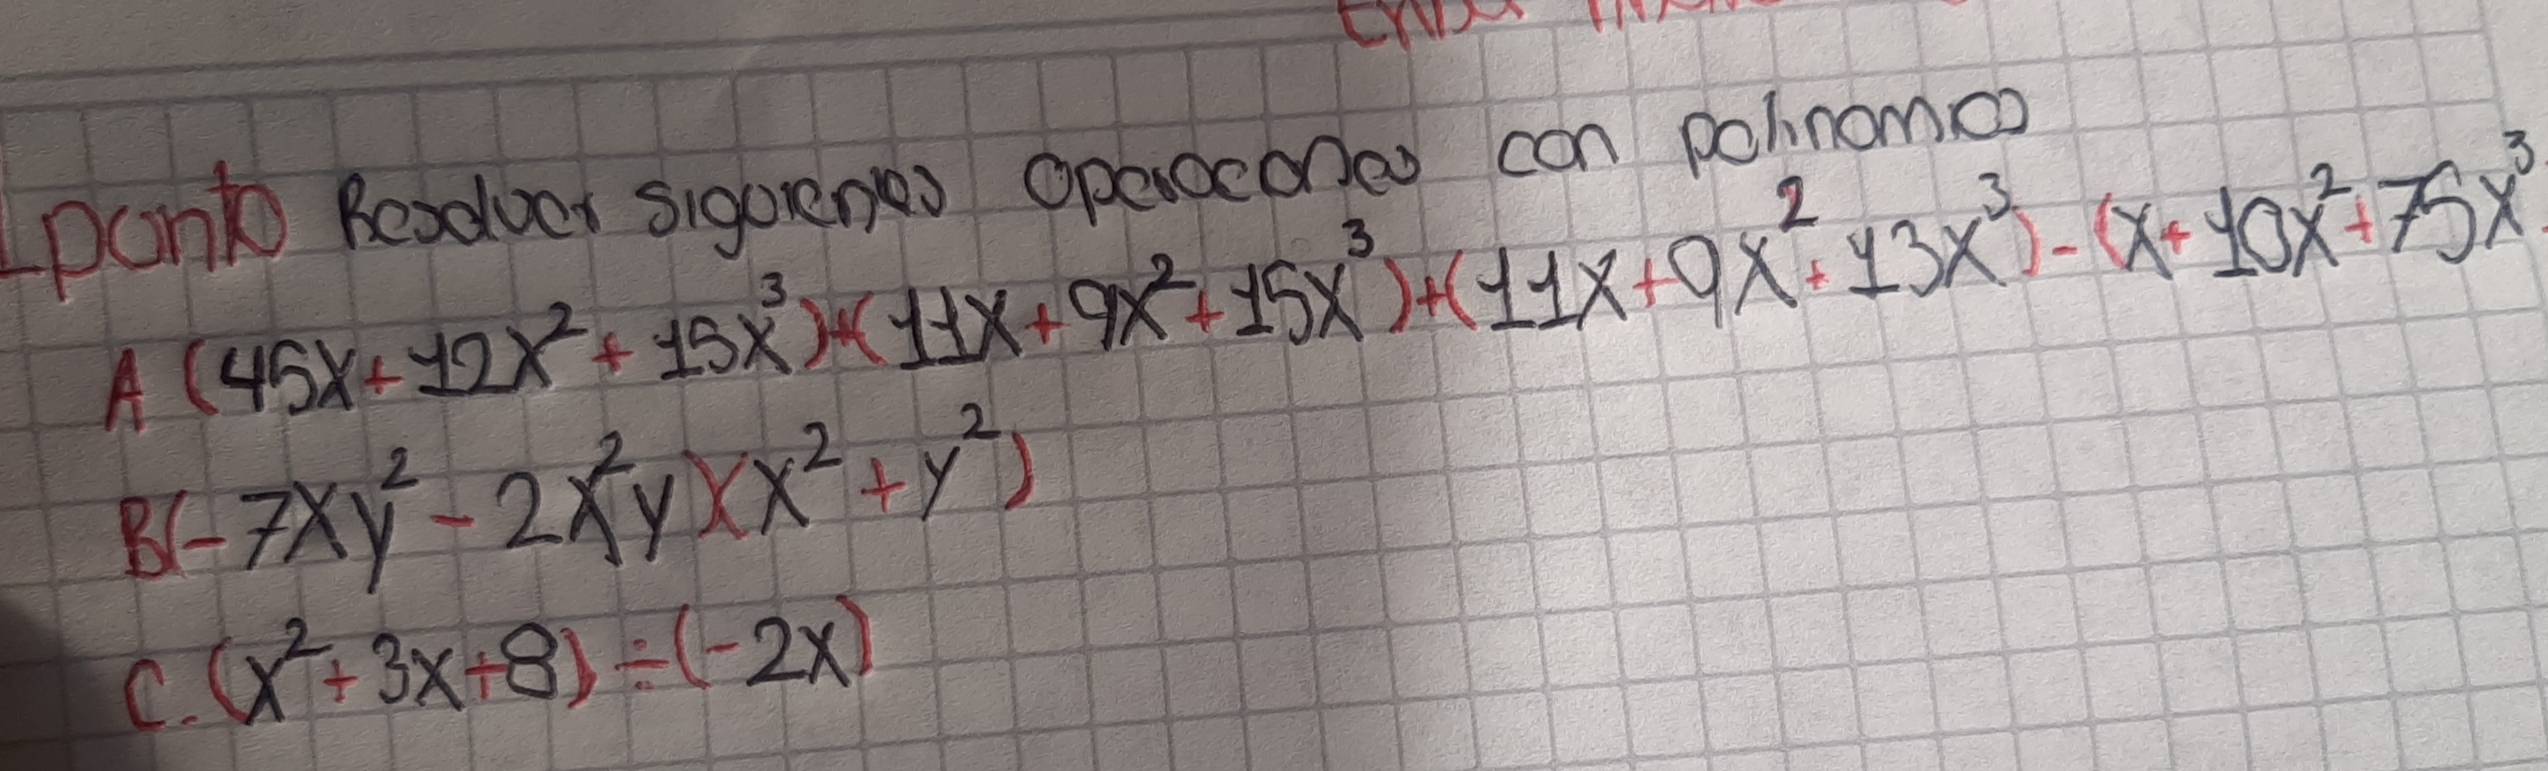 1 punto Resolver siguientes operaciones con polinomios
A (45x + 12x² + 15x³) + (11x + 9x² + 15x³) + (11x + 9x² + 13x³) - (x + 10x² + 75x³
B (- 7xy² - 2x²y)(x² + y²)
C. (x² + 3x + 8) ÷ (-2x)